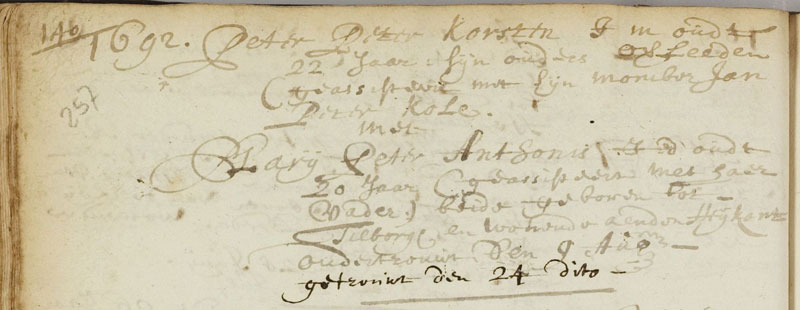 140
1692. Peter Peter Korsten J m oudt
22 Jaar sijn ouders overleeden
(geassisteert met sijn momber Jan
Peter Kole.
met
257
Marij Peter Anthonis J d oudt
20 Jaar (geassisteert met haer
Vader.) beide geboren tot
Tilborg en wonende aenden Heijkant
ondertrouwt den 9 Aug
getrouwt den 24 dito